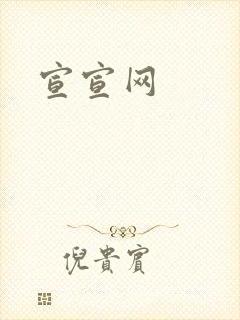 宣宣网
倪貴賓